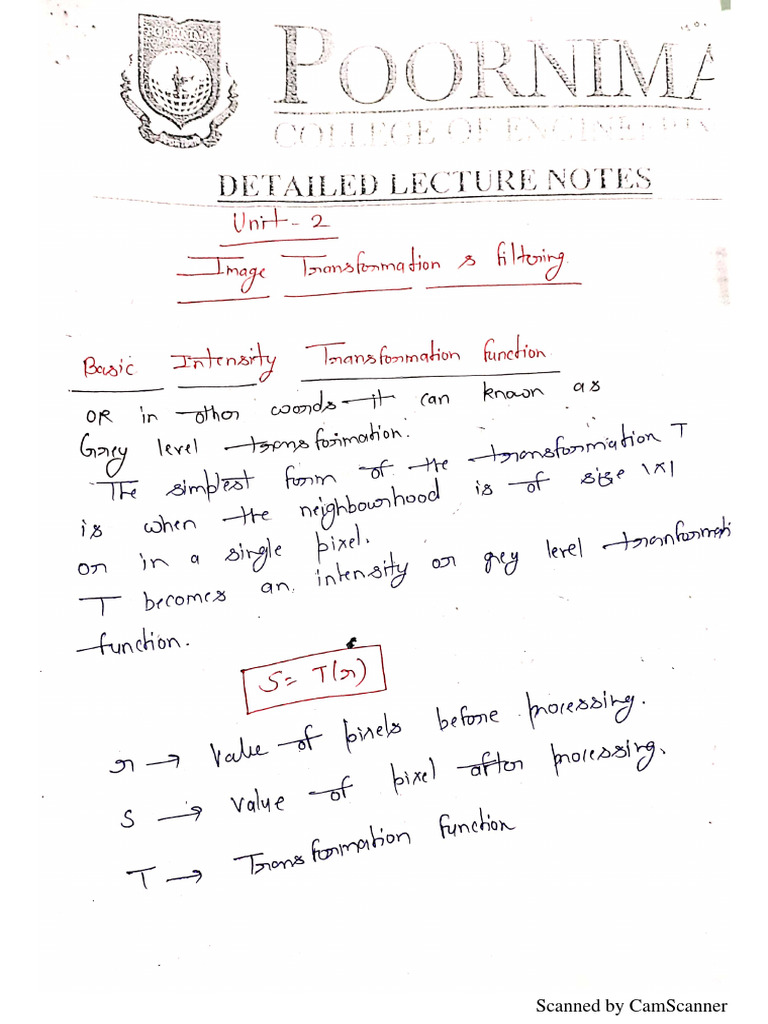 POORNIMA
COLLEGE OF ENGINEERIN
DETAILED LECTURE NOTES
Unit - 2
Image Transformation & filtering
Basic Intensity Transformation function
OR in other words it can known as
Grey level transformation.
The simplest form of the transformation T
is when the neighbourhood is of size 1x1
or in a single pixel.
T becomes an intensity or grey level tranformati
function.
S = T(r)
r → Value of pixels before processing.
S → Value of pixel after processing.
T → Transformation function
Scanned by CamScanner